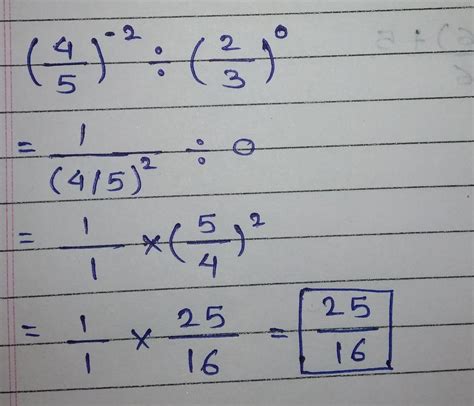 (4/5)^-2 ÷ (2/3)^0
= 1/(4/5)^2 ÷ 0
= 1/1 × (5/4)^2
= 1/1 × 25/16 = 25/16